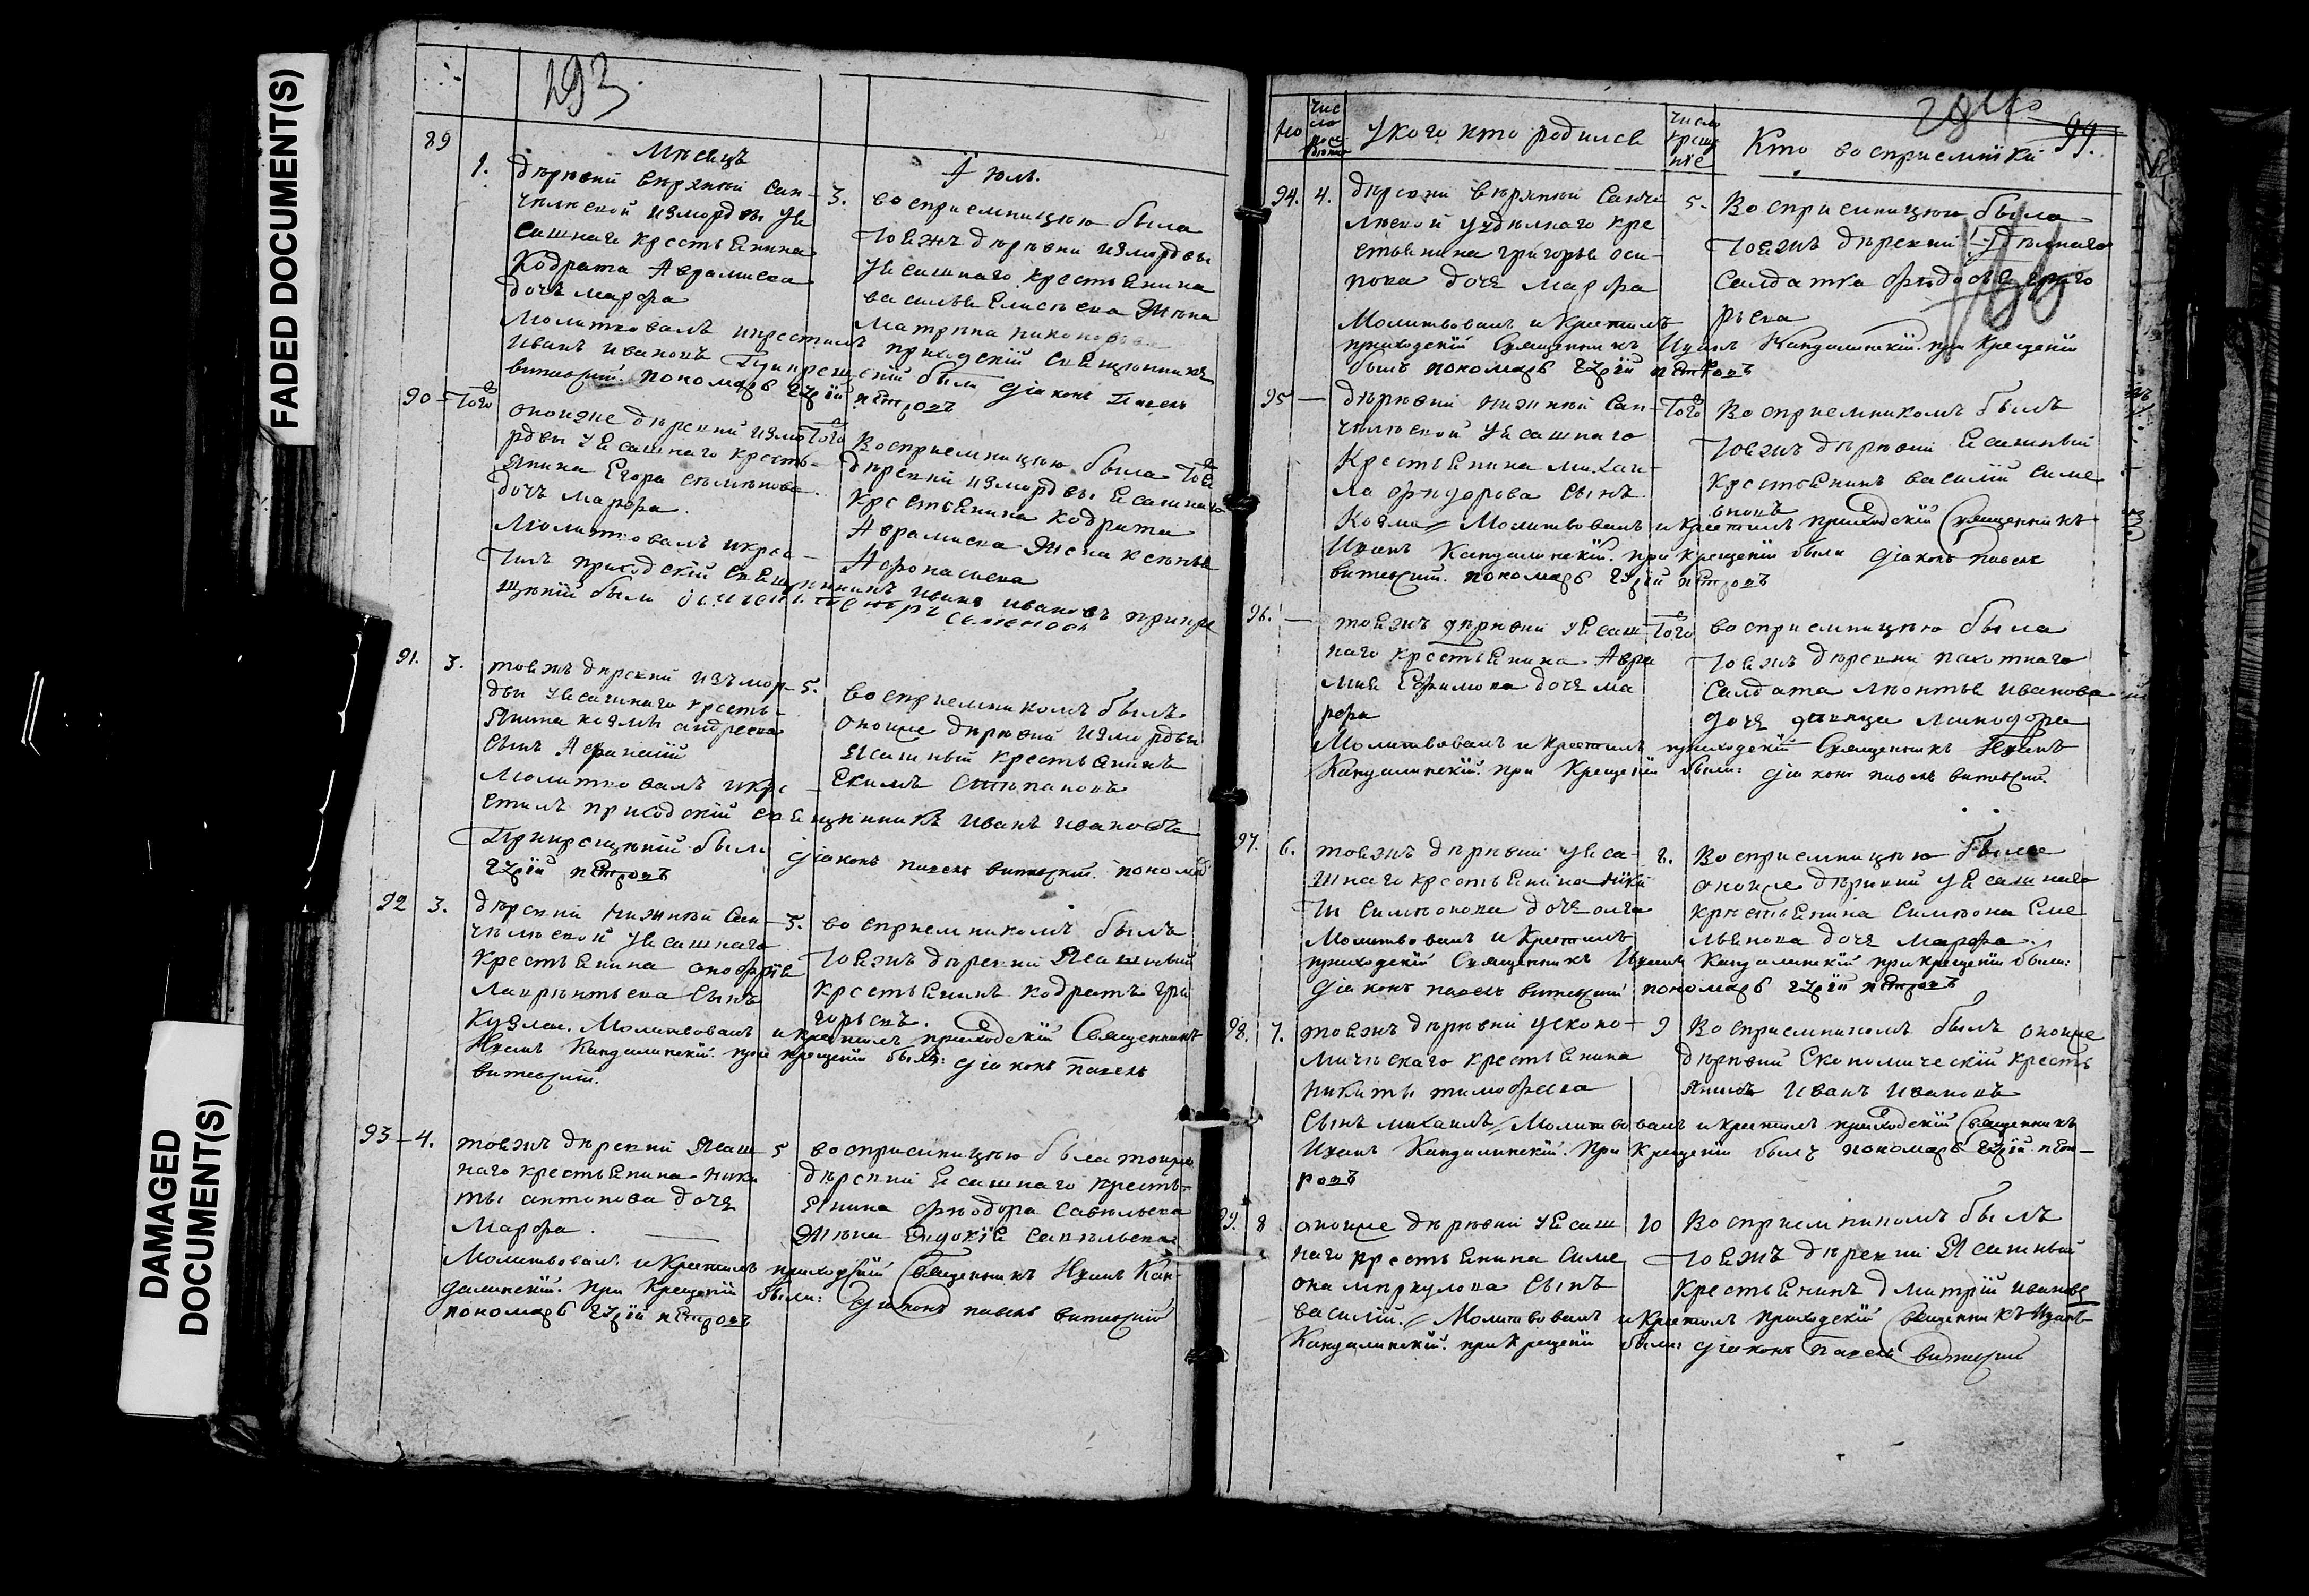 FADED DOCUMENT(S)
DAMAGED
DOCUMENT(S)
293
Мѣсецъ
Июль
89
1.
деревни верхней Сан-
челеевой измордвы уе
сашнаго крестьенина
Кодрата Аврамиева
дочь марфа
Молитвовалъ икрестилъ приходскiй священникъ
Иванъ Ивановъ Прикрещенiи были дiаконъ Павелъ
витевскiй. пономарь Петровъ
3.
восприемницею была
тоежъ деревни измордвы
уесашнаго крестьенина
василья Елисеева жена
матрена
90 Того
оноиже деревни измо
рдвы уесашнаго кресть-
янина Егора семенова
дочь марфа.
Молитвовалъ икрес-
тилъ приходскiй священникъ Иванъ Ивановъ прикре
щенiи были
Того
восприемницею была тое
деревни измордвы есашнаго
крестьенина кодрата
Аврамиева жена
Афонасиева
91. 3.
тоежъ деревни измор-
двы уесашнаго кресть-
янина козмы андреева
сынъ Афанасiй
Молитвовалъ икре
стилъ приходскiй священникъ Иванъ Ивановъ
Прикрещенiи были дiаконъ павелъ витевскiй. понома
Петровъ
5.
восприемникомъ былъ
оноиже деревни измордвы
ясашный крестьянинъ
Екимъ Степановъ
92 3.
деревни нижней Сан-
челеевой уесашнаго
крестьенина онофрiе
Лаврентьева сынъ
Кузма. Молитвовалъ и крестилъ приходскiй Священникъ
Иванъ Кандалинскiй. при крещенiи былъ: дiаконъ Павелъ
витевскiй.
5.
восприемникомъ былъ
тоежъ деревни ясашный
крестьенинъ кодратъ гри
горьевъ.
93 4.
тоежъ деревни ясаш
наго крестьенина ники
ты антонова дочь
Марфа.
Молитвовалъ и крестилъ приходскiй священникъ Иванъ Кан-
далинскiй. При Крещенiи были: дiаконъ павелъ витевскiй
пономарь Петровъ
5
восприемницею была тоиже
деревни есашнаго кресть-
янина феодора савельева
жена Евдокiе савельева
284
99.
No
Число рожденiя
Укого кто родился
Число крещенiе
Кто восприемники
94. 4.
деревни верхней Санче
леевой удельнаго кре
стьенина григорья оси-
пова доче марфа
Молитвовалъ и Крестилъ
приходскiй Священникъ Иванъ Кандалинскiй. при крещенiи
былъ пономарь Петровъ
5.
Восприемницею была
тоежъ деревни
Салдатка григо
рьева
95 —
деревни нижней Сан-
челеевой уесашнаго
Крестьенина Михаи-
ла федорова сынъ
Козма // Молитвовалъ и крестилъ приходскiй священникъ
Иванъ Кандалинскiй. при крещенiи были дiаконъ павелъ
витевскiй. пономарь Петровъ
Того
Восприемникомъ былъ
тоежъ деревни есашный
крестьенинъ василiй симе
оновъ
96. —
тоежъ деревни уесаш
наго крестьенина Авра
мие Ефимова доче ма
рфа
Молитвовалъ и крестилъ приходскiй Священникъ Иванъ
Кандалинскiй. при Крещенiи были: дiаконъ павелъ витевскiй
Того
восприемницею была
тоежъ деревни пахотнаго
Салдата леонтье иванова
доче девица минодора
97. 6.
тоежъ деревни уеса-
шнаго крестьенина ники
ты Симеонова доче олга
Молитвовалъ и крестилъ
приходскiй Священникъ Иванъ Кандалинскiй при крещенiи были:
дiаконъ павелъ витевскiй пономарь Петровъ
8.
Восприемницею была
оноиже деревни уесашнаго
крестьенина Симеона Еме
льенова доче марфа.
98. 7.
тоежъ деревни уеконо-
мическаго крестьенина
никиты тимофеева
сынъ михаилъ // Молитвовалъ и крестилъ приходскiй священникъ
Иванъ Кандалинскiй. При Крещенiи былъ пономарь Пет-
ровъ
9
Восприемникомъ былъ оноиже
деревни Економическiй кресть
янинъ Иванъ Ивановъ
99. 8
оноиже деревни уесаш
наго крестьенина Симе
она меркулова сынъ
василiй. // Молитвовалъ и крестилъ приходскiй священникъ Иванъ
Кандалинскiй. при крещенiи были: дiаконъ Павелъ витевскiй
10
Восприемникомъ былъ
тоежъ деревни ясашный
крестьенинъ дмитрiй иванове